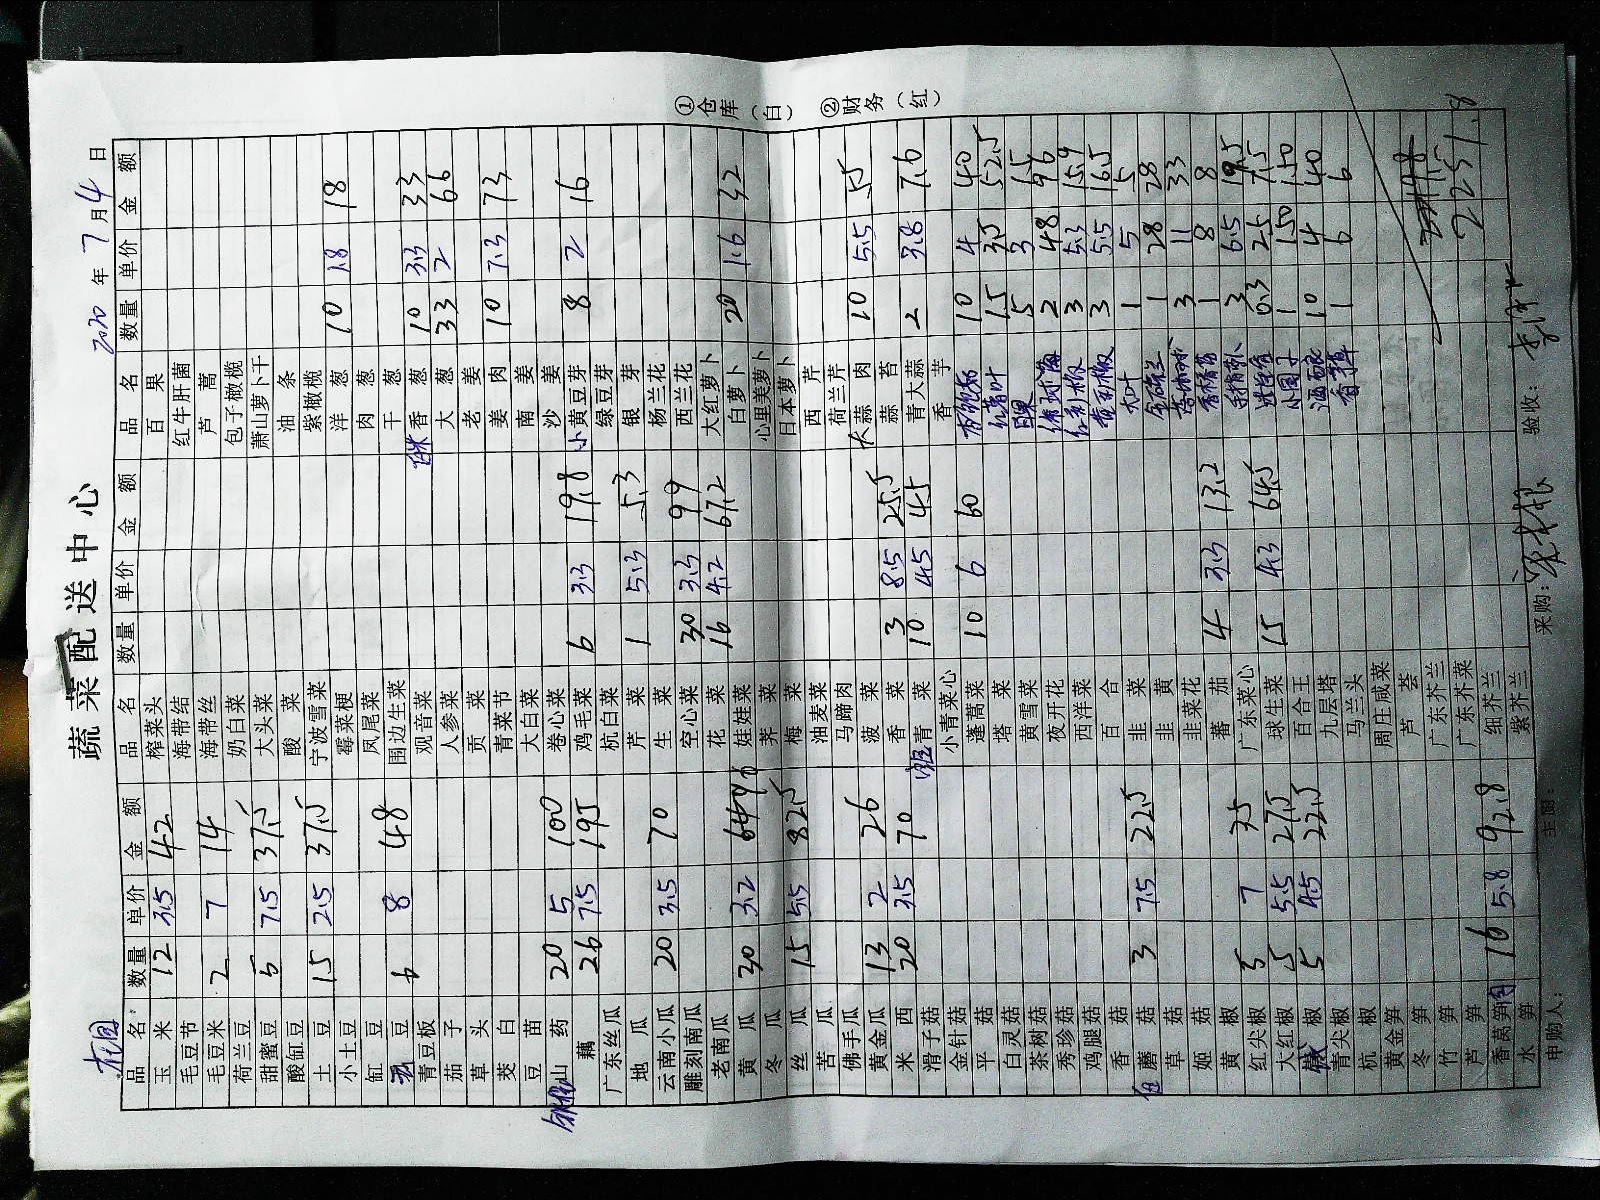 蔬菜配送中心
龙园
2020年7月4日
品名 数量 单价 金额 品名 数量 单价 金额 品名 数量 单价 金额
玉米 12 3.5 42 榨菜头 百果
毛豆节 海带结 红牛肝菌
毛豆米 2 7 14 海带丝 芦蒿
荷兰豆 奶白菜 包子橄榄
甜蜜豆 5 7.5 37.5 大头菜 萧山萝卜干
酸缸豆 酸菜 油条
土豆 15 2.5 37.5 宁波雪菜 紫橄榄
小土豆 霉菜梗 洋葱 10 1.8 18
缸豆 凤尾菜 肉葱
豆 6 8 48 围边生菜 干葱
青豆板 观音菜 香葱 10 3.3 33
茄子 人参菜 大葱 33 2 66
草头 贡菜 老姜
茭白 青菜节 姜肉 10 7.3 73
豆苗 大白菜 南姜
山药 20 5 100 卷心菜 沙姜
藕 26 7.5 195 鸡毛菜 6 3.3 19.8 小黄豆芽 8 2 16
广东丝瓜 杭白菜 绿豆芽
地瓜 芹菜 1 5.3 5.3 银芽
云南小瓜 20 3.5 70 生菜 杨兰花
雕刻南瓜 空心菜 30 3.3 99 西兰花
老南瓜 花菜 16 4.2 67.2 大红萝卜
黄瓜 30 3.2 96 娃娃菜 白萝卜 20 1.6 32
冬瓜 荠菜 心里美萝卜
丝瓜 15 5.5 82.5 梅菜 日本萝卜
苦瓜 油麦菜 西芹
佛手瓜 马蹄肉 荷兰芹
黄金瓜 13 2 26 菠菜 大蒜肉 10 5.5 55
米西 20 3.5 70 香菜 3 8.5 25.5 蒜苔
滑子菇 青菜 10 4.5 45 青大蒜 2 3.8 7.6
金针菇 小青菜心 香芋
平菇 蓬蒿菜 10 6 60 10 4 40
白灵菇 塔菜 红苋叶 15 3.5 52.5
茶树菇 黄雪菜 5 3 15
秀珍菇 夜开花 2 48 96
鸡腿菇 西洋菜 3 5.3 15.9
香菇 百合 3 5.5 16.5
蘑菇 3 7.5 22.5 韭菜 1 5 5
草菇 韭黄 1 28 28
姬菇 韭菜花 3 11 33
黄椒 蕃茄 4 3.3 13.2 1 8 8
红尖椒 5 7 35 广东菜心 3 6.5 19.5
大红椒 5 5.5 27.5 球生菜 15 4.3 64.5 0.3 25 7.5
椒 5 4.5 22.5 百合王 1 150 150
青尖椒 九层塔 10 4 40
杭椒 马兰头 香草 1 6 6
黄金笋 周庄咸菜
冬笋 芦荟
竹笋 广东芥兰
芦笋 广东芥菜 2251.8
香莴笋 16 5.8 92.8 细芥兰
水笋 紫芥兰
申购人： 主厨： 采购： 验收：
①仓库（白） ②财务（红）